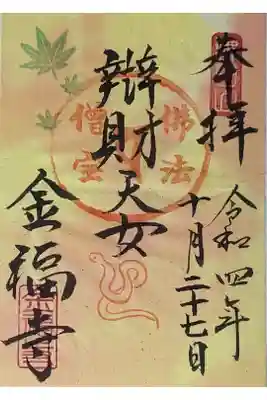 奉拝
令和四年
十月二十七日
佛法
僧宝
辨財天女
金福寺